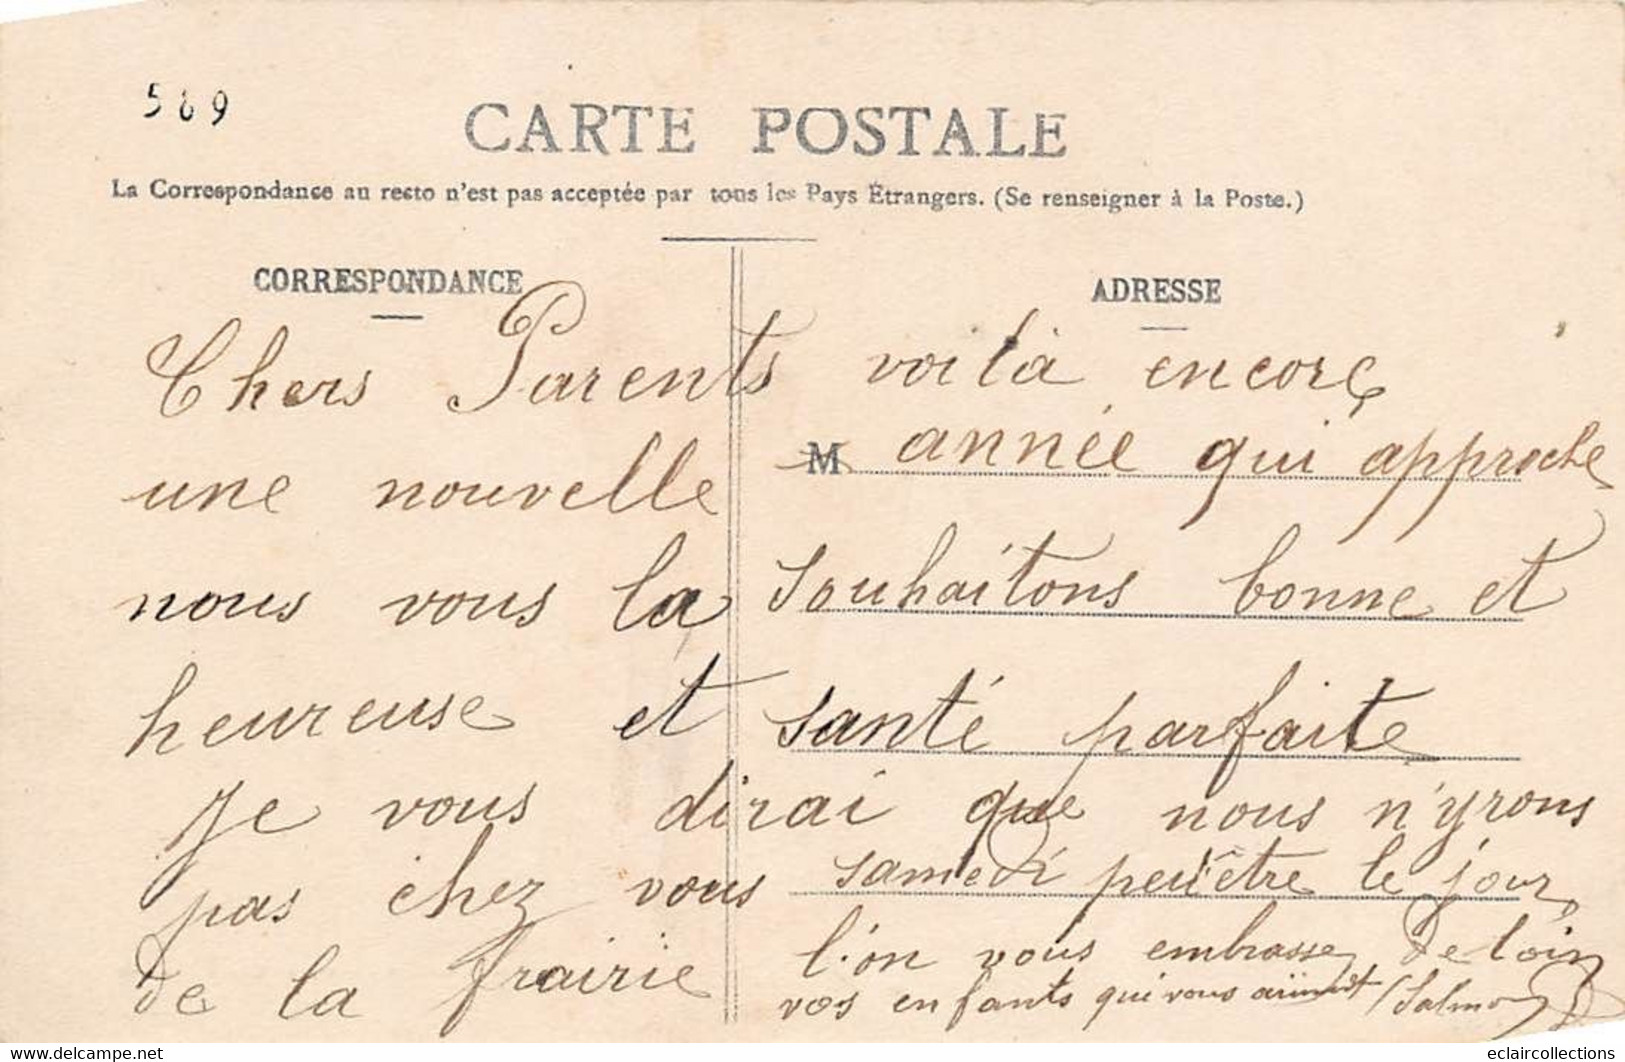 589
CARTE POSTALE
La Correspondance au recto n'est pas acceptée par tous les Pays Étrangers. (Se renseigner à la Poste.)
CORRESPONDANCE
ADRESSE
Chers Parents voila encore
une nouvelle M année qui approche
nous vous la souhaitons bonne et
heureuse et santé parfaite
Je vous dirai que nous n'yrons
pas chez vous samedi peuêtre le jour
de la frairie l'on vous embrasse de loin
vos enfants qui vous
eclaircollections